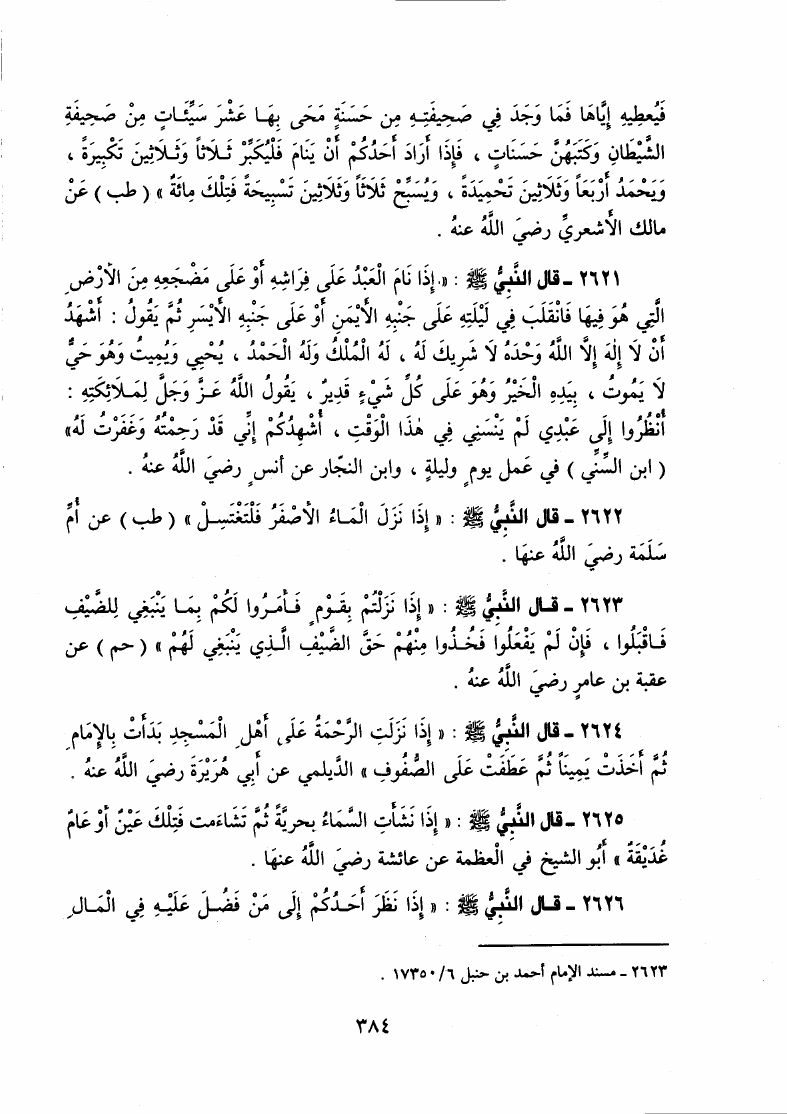 فَيُعطِيهِ إِيَّاهَا فَمَا وَجَدَ فِي صَحِيفَتِـهِ مِن حَسَنَةٍ مَحَى بِـهَا عَشْرَ سَيِّئَـاتٍ مِنْ صَحِيفَةِ
الشَّيْطَانِ وَكَتَبَهُنَّ حَسَنَاتٍ ، فَإِذَا أَرَادَ أَحَدُكُمْ أَنْ يَنَامَ فَلْيُكَبِّرْ ثَـلَاثاً وَثَـلَاثِينَ تَكْبِيرَةً ،
وَيَحْمَدُ أَرْبَعاً وَثَلَاثِينَ تَحْمِيدَةً ، وَيُسَبِّحْ ثَلَاثاً وَثَلَاثِينَ تَسْبِيحَةً فَتِلْكَ مِائَةٌ » ( طب ) عَنْ
مالك الأشعريِّ رضيَ اللَّهُ عنهُ .
٢٦٢١ ـ قال النَّبِيُّ ﷺ : «إِذَا نَامَ الْعَبْدُ عَلَى فِرَاشِهِ أَوْ عَلَى مَضْجَعِهِ مِنَ الأرْضِ
الَّتِي هُوَ فِيهَا فَانْقَلَبَ فِي لَيْلَتِهِ عَلَى جَنْبِهِ الأَيْمَنِ أَوْ عَلَى جَنْبِهِ الأَيْسَرِ ثُمَّ يَقُولُ : أَشْهَدُ
أَنْ لَا إِلٰهَ إِلَّا اللَّهُ وَحْدَهُ لَا شَرِيكَ لَهُ ، لَهُ الْمُلْكُ وَلَهُ الْحَمْدُ ، يُحْيِي وَيُمِيتُ وَهُوَ حَيٌّ
لَا يَمُوتُ ، بِيَدِهِ الْخَيْرُ وَهُوَ عَلَى كُلِّ شَيْءٍ قَدِيرٌ ، يَقُولُ اللَّهُ عَـزَّ وَجَلَّ لِمَـلَائِكَتِهِ :
أُنْظُرُوا إِلَى عَبْدِي لَمْ يَنْسَنِي فِي هٰذَا الْوَقْتِ ، أُشْهِدُكُمْ إِنِّي قَدْ رَحِمْتُهُ وَغَفَرْتُ لَهُ»
( ابن السُّنِّي ) في عَمل يومٍ وليلةٍ ، وابن النجَّار عن أنسٍ رضيَ اللَّهُ عنهُ .
٢٦٢٢ ـ قال النَّبِيُّ ﷺ : « إِذَا نَزَلَ الْمَـاءُ الأَصْفَرُ فَلْتَغْتَسِـلْ » ( طب ) عن أُمِّ
سَلَمَة رضيَ اللَّهُ عنهَا .
٢٦٢٣ ـ قـال النَّبِيُّ ﷺ : « إِذَا نَزَلْتُمْ بِقَـوْمٍ فَـأَمَـرُوا لَكُمْ بِمَـا يَنْبَغِي لِلضَّيْفِ
فَـاقْبَلُوا ، فَإِنْ لَمْ يَفْعَلُوا فَخُـذُوا مِنْهُمْ حَقَّ الضَّيْفِ الَّـذِي يَنْبَغِي لَهُمْ » ( حم ) عن
عقبة بن عامرٍ رضيَ اللَّهُ عنهُ .
٢٦٢٤ ـ قال النَّبِيُّ ﷺ : « إِذَا نَزَلَتِ الرَّحْمَةُ عَلَى أَهْلِ الْمَسْجِدِ بَدَأَتْ بِالإِمَامِ
ثُمَّ أَخَذَتْ يَمِيناً ثُمَّ عَطَفَتْ عَلَى الصُّفُوفِ » الدَّيلمي عن أَبي هُرَيْرَةَ رضيَ اللَّهُ عنهُ .
٢٦٢٥ ـ قال النَّبِيُّ ﷺ : « إِذَا نَشَأَتِ السَّمَاءُ بحريَّةً ثُمَّ تَشَاءَمت فَتِلْكَ عَيْنٌ أَوْ عَامٌ
غُدَيْقَةٌ » أَبُو الشيخ في الْعظمة عن عائشة رضيَ اللَّهُ عنهَا .
٢٦٢٦ ـ قـال النَّبِيُّ ﷺ : « إِذَا نَظَرَ أَحَـدُكُمْ إِلَى مَنْ فَضُـلَ عَلَيْـهِ فِي الْمَـالِ
٢٦٢٣ ـ مسند الإمام أحمد بن حنبل ١٧٣٥٠/٦ .
٣٨٤